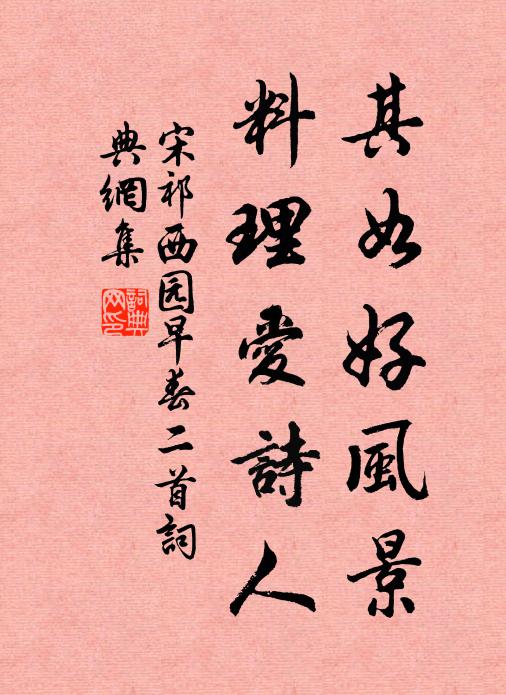 其如好風景
料理愛詩人
宋祁西园早春二首詞
典網集
詞典
网印